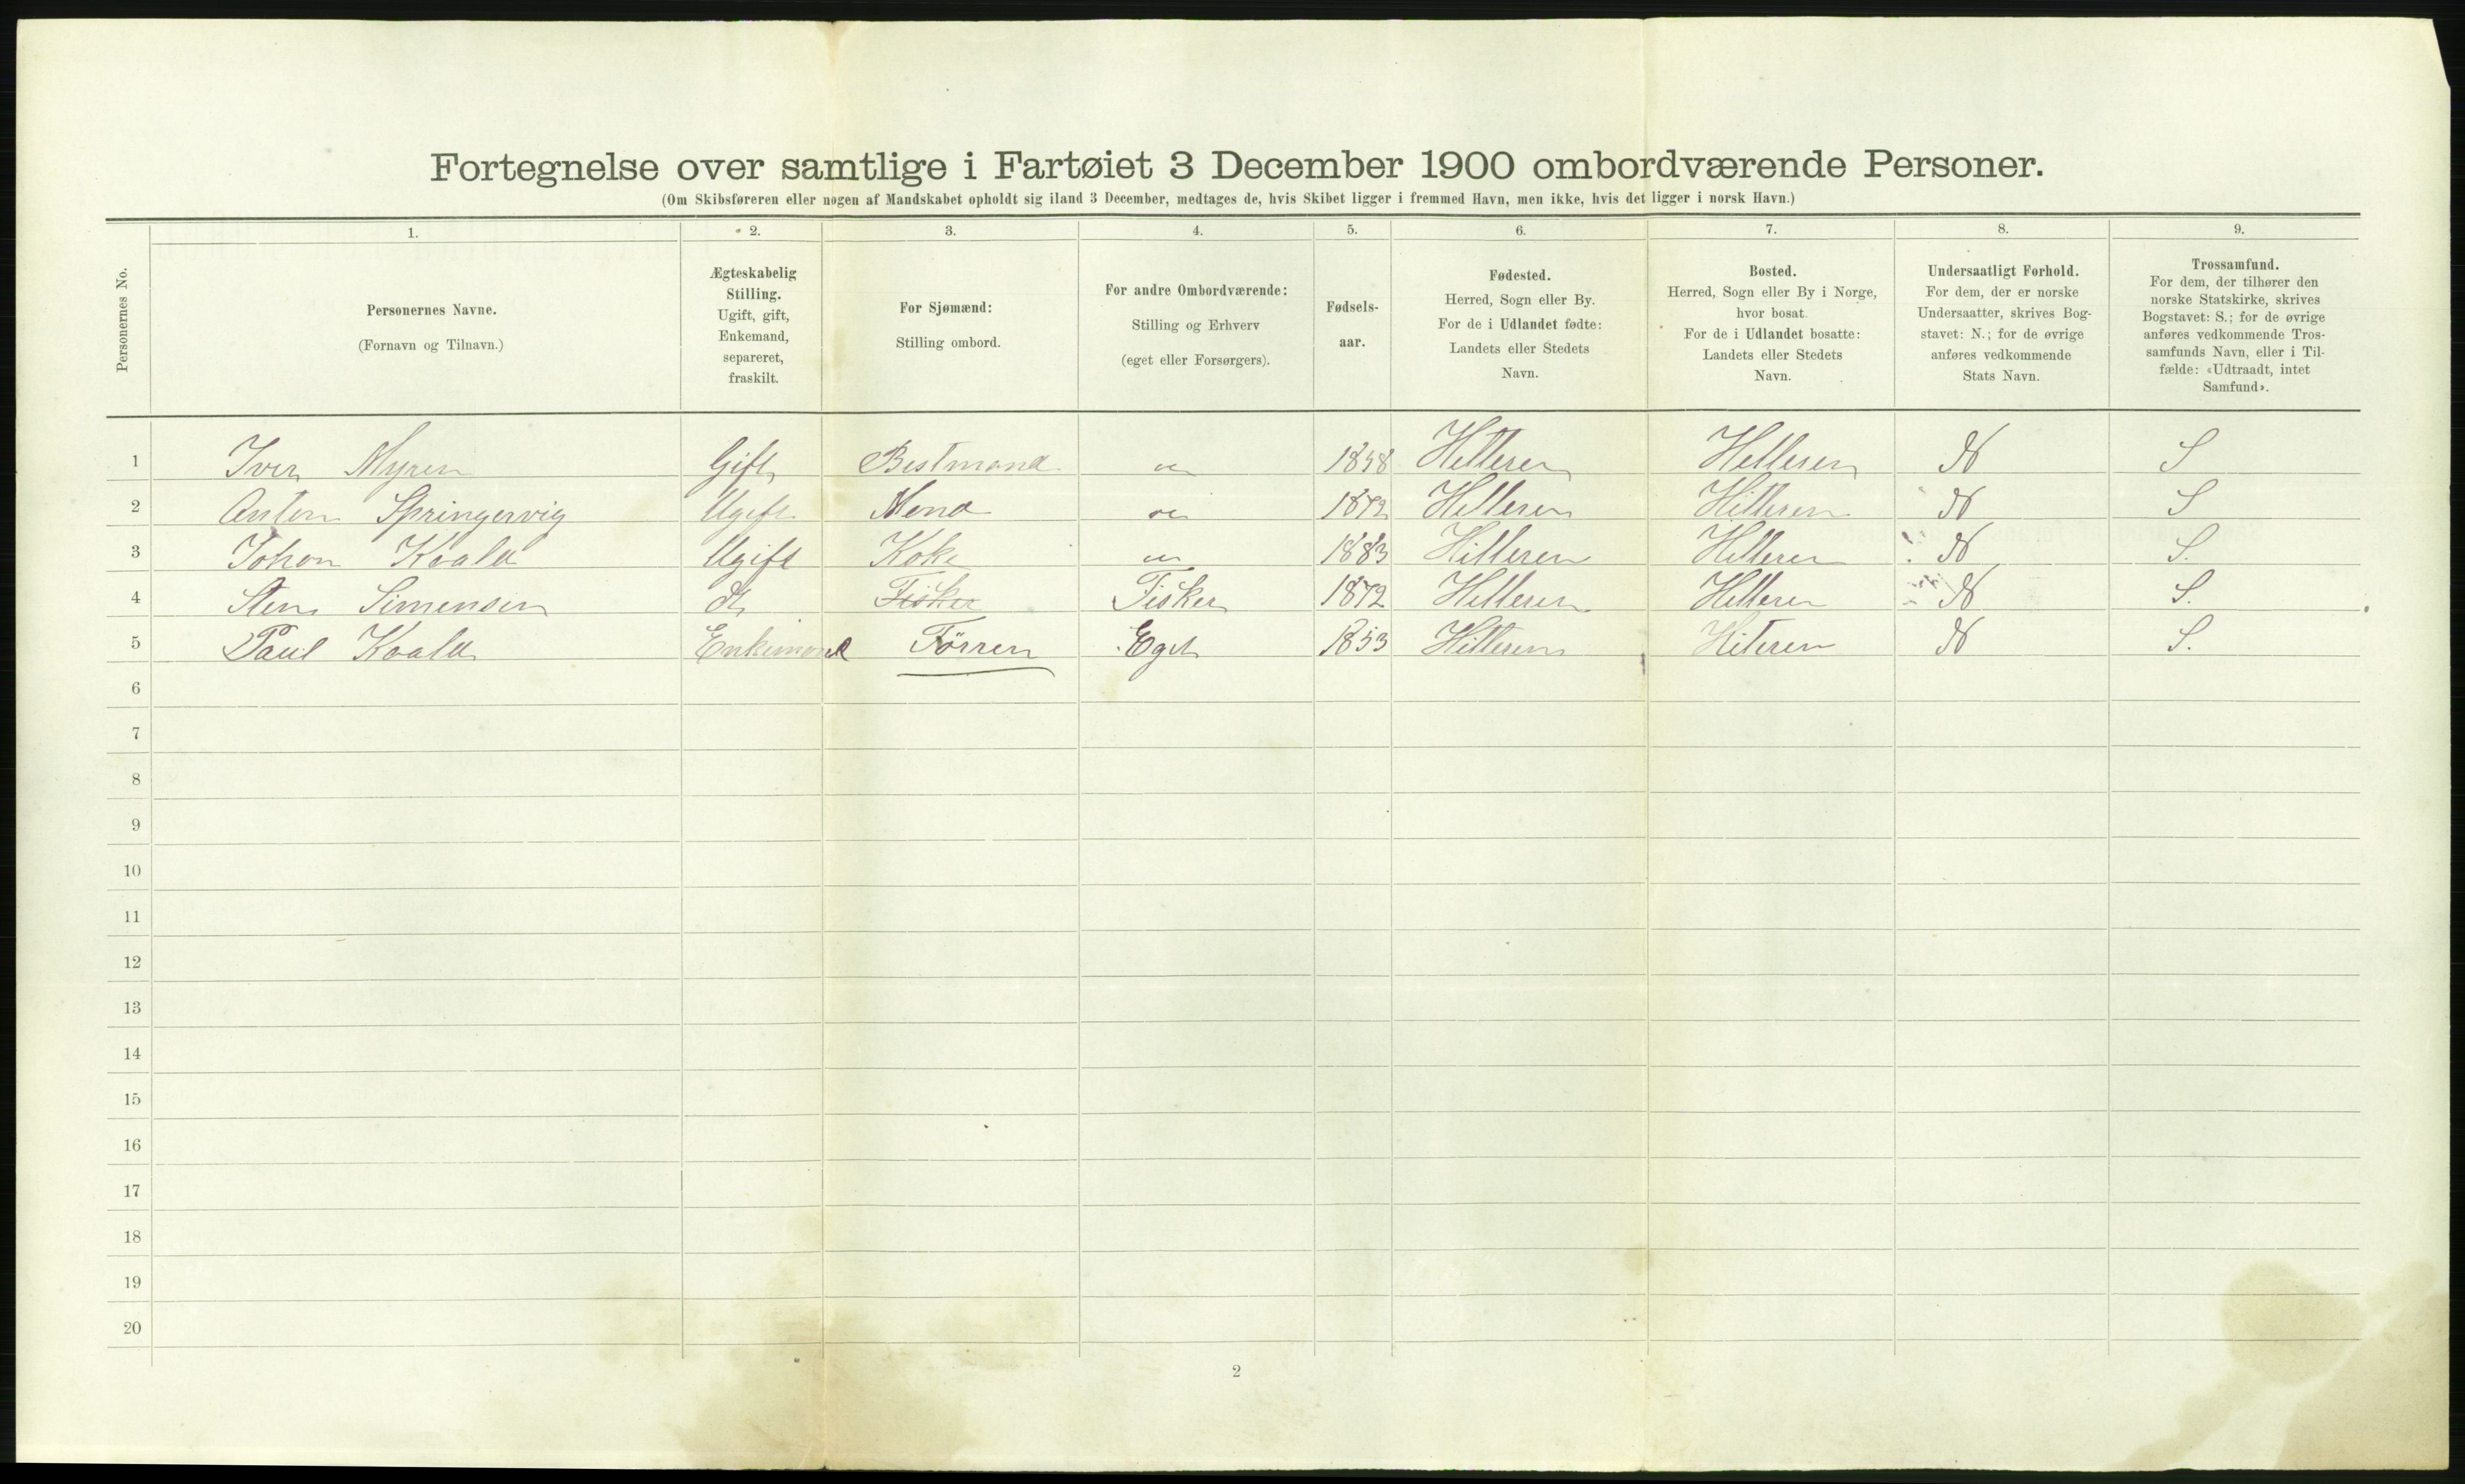 Fortegnelse over samtlige i Fartøiet 3 December 1900 ombordværende Personer.
(Om Skibsføreren eller nogen af Mandskabet opholdt sig iland 3 December, medtages de, hvis Skibet ligger i fremmed Havn, men ikke, hvis det ligger i norsk Havn.)
Personernes No.
1. 2. 3. 4. 5. 6. 7. 8. 9.
Personernes Navne.
(Fornavn og Tilnavn.)
Ægteskabelig
Stilling.
Ugift, gift,
Enkemand,
separeret,
fraskilt.
For Sjømænd:
Stilling ombord.
For andre Ombordværende:
Stilling og Erhverv
(eget eller Forsørgers).
Fødsels-
aar.
Fødested.
Herred, Sogn eller By.
For de i Udlandet fødte:
Landets eller Stedets
Navn.
Bosted.
Herred, Sogn eller By i Norge,
hvor bosat.
For de i Udlandet bosatte:
Landets eller Stedets
Navn.
Undersaatligt Forhold.
For dem, der er norske
Undersaatter, skrives Bog-
stavet: N.; for de øvrige
anføres vedkommende
Stats Navn.
Trossamfund.
For dem, der tilhører den
norske Statskirke, skrives
Bogstavet: S.; for de øvrige
anføres vedkommende Tros-
samfunds Navn, eller i Til-
fælde: «Udtraadt, intet
Samfund».
1 Iver Myren Gift Bestmand Hitteren Hitteren N S
2 Anton Springervig Ugift 1872 Hitteren Hitteren N S
3 Johan Kvalø Ugift Kok 1883 Hitteren Hitteren N S.
4 Sten Simensen Fisker Fisker 1872 Hitteren Hitteren N S.
5 Paul Kvalø Enkemand Førren Eget 1853 Hitteren Hiteren N S.
6
7
8
9
10
11
12
13
14
15
16
17
18
19
20
2